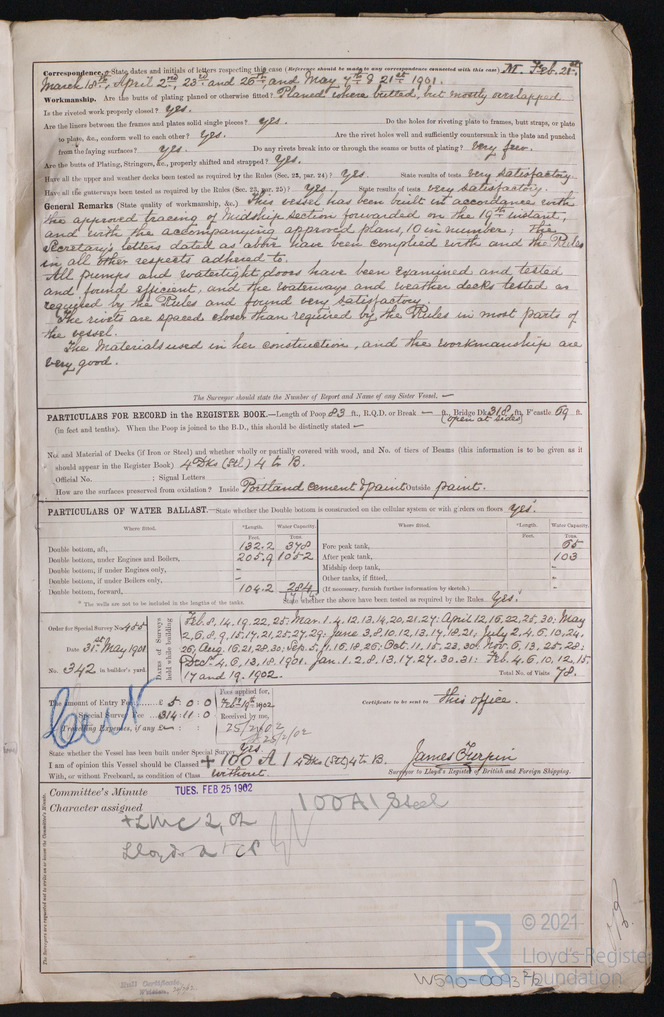 Correspondence. State dates and initials of letters respecting this case (Reference should be made to any correspondence connected with this case) M. Feb. 21st
March 18th, April 2nd, 23rd and 26th, and May 7th & 21st 1901.
Workmanship. Are the butts of plating planed or otherwise fitted? Planed where butted, but mostly overlapped
Is the riveted work properly closed? yes.
Are the liners between the frames and plates solid single pieces? yes. Do the holes for riveting plate to frames, butt straps, or plate
to plate, &c., conform well to each other? yes. Are the rivet holes well and sufficiently countersunk in the plate and punched
from the faying surfaces? yes. Do any rivets break into or through the seams or butts of plating? very few.
Are the butts of Plating, Stringers, &c., properly shifted and strapped? yes.
Have all the upper and weather decks been tested as required by the Rules (Sec. 23, par. 24)? yes. State results of tests very satisfactory.
Have all the gutterways been tested as required by the Rules (Sec. 23, par. 25)? yes. State results of tests very satisfactory.
General Remarks (State quality of workmanship, &c.) This vessel has been built in accordance with
the approved tracing of Midship Section forwarded on the 19th instant,
and with the accompanying approved plans, 10 in number; the
Secretary's letters dated as above have been complied with and the Rules
in all other respects adhered to.
All pumps and watertight doors have been examined and tested
and found efficient, and the waterways and weather decks tested as
required by the Rules and found very satisfactory
The rivets are spaced closer than required by the Rules in most parts of
the vessel.
The materials used in her construction, and the workmanship are
very good.
The Surveyor should state the Number of Report and Name of any Sister Vessel. —
PARTICULARS FOR RECORD in the REGISTER BOOK.—Length of Poop 83 ft., R.Q.D. or Break — ft., Bridge Dk 318 ft., F'castle 69 ft.
(open at sides)
(in feet and tenths). When the Poop is joined to the B.D., this should be distinctly stated —
No. and Material of Decks (if Iron or Steel) and whether wholly or partially covered with wood, and No. of tiers of Beams (this information is to be given as it
should appear in the Register Book) 4 Dks (Stl) 4 to B.
Official No. ; Signal Letters
How are the surfaces preserved from oxidation? Inside Portland cement & paint Outside paint.
PARTICULARS OF WATER BALLAST.—State whether the Double bottom is constructed on the cellular system or with girders on floors yes.
Where fitted. *Length. Water Capacity. Where fitted. *Length. Water Capacity.
Feet. Tons. Feet. Tons.
Double bottom, aft, 132.2 378 Fore peak tank, 65
Double bottom, under Engines and Boilers, 205.9 1052 After peak tank, 103
Double bottom, if under Engines only, – Midship deep tank, –
Double bottom, if under Boilers only, – Other tanks, if fitted, –
Double bottom, forward, 104.2 284 (If necessary, furnish further information by sketch.)
1714
* The wells are not to be included in the lengths of the tanks. State whether the above have been tested as required by the Rules yes.
Order for Special Survey No. 455
Date 31st May 1901
No. 342 in builder's yard.
Dates of Surveys held while building
Feb. 8, 14, 19, 22, 25: Mar. 1, 4, 12, 13, 14, 20, 21, 27: April 12, 16, 22, 25, 30: May
2, 6, 8, 9, 15, 17, 21, 25, 27, 29: June 3, 8, 10, 12, 13, 17, 18, 21, July 2, 4, 6, 10, 24,
26, Aug. 16, 21, 28, 30: Sep. 5, 11, 16, 18, 26: Oct. 11, 15, 23, 30: Nov. 6, 13, 25, 28:
Decr. 4, 6, 13, 18. 1901. Jan. 1, 2, 8, 13, 17, 27, 30, 31: Feb. 4, 6, 10, 12, 15
17 and 19. 1902. Total No. of Visits 78.
The amount of Entry Fee £ 5 : 0 : 0
Special Survey Fee 314 : 11 : 0
Travelling Expenses, if any £ – : :
Fees applied for,
Feb. 19th 1902
Received by me,
25/2/02
25/2/02
Certificate to be sent to this office.
State whether the Vessel has been built under Special Survey Yes.
I am of opinion this Vessel should be Classed + 100 A 1 4 Dks (Stl) 4 to B.
With, or without Freeboard, as condition of Class without.
James Turpin
Surveyor to Lloyd's Register of British and Foreign Shipping.
Committee's Minute TUES. FEB 25 1902
Character assigned 100A1 Steel
+ LMC 2, 02
Lloyds a & CP
The Surveyors are requested not to write on or across the Committee's Minute.
Hull Certificate
Written
© 2021
Lloyd's Register
Foundation
W590-0093 2/2